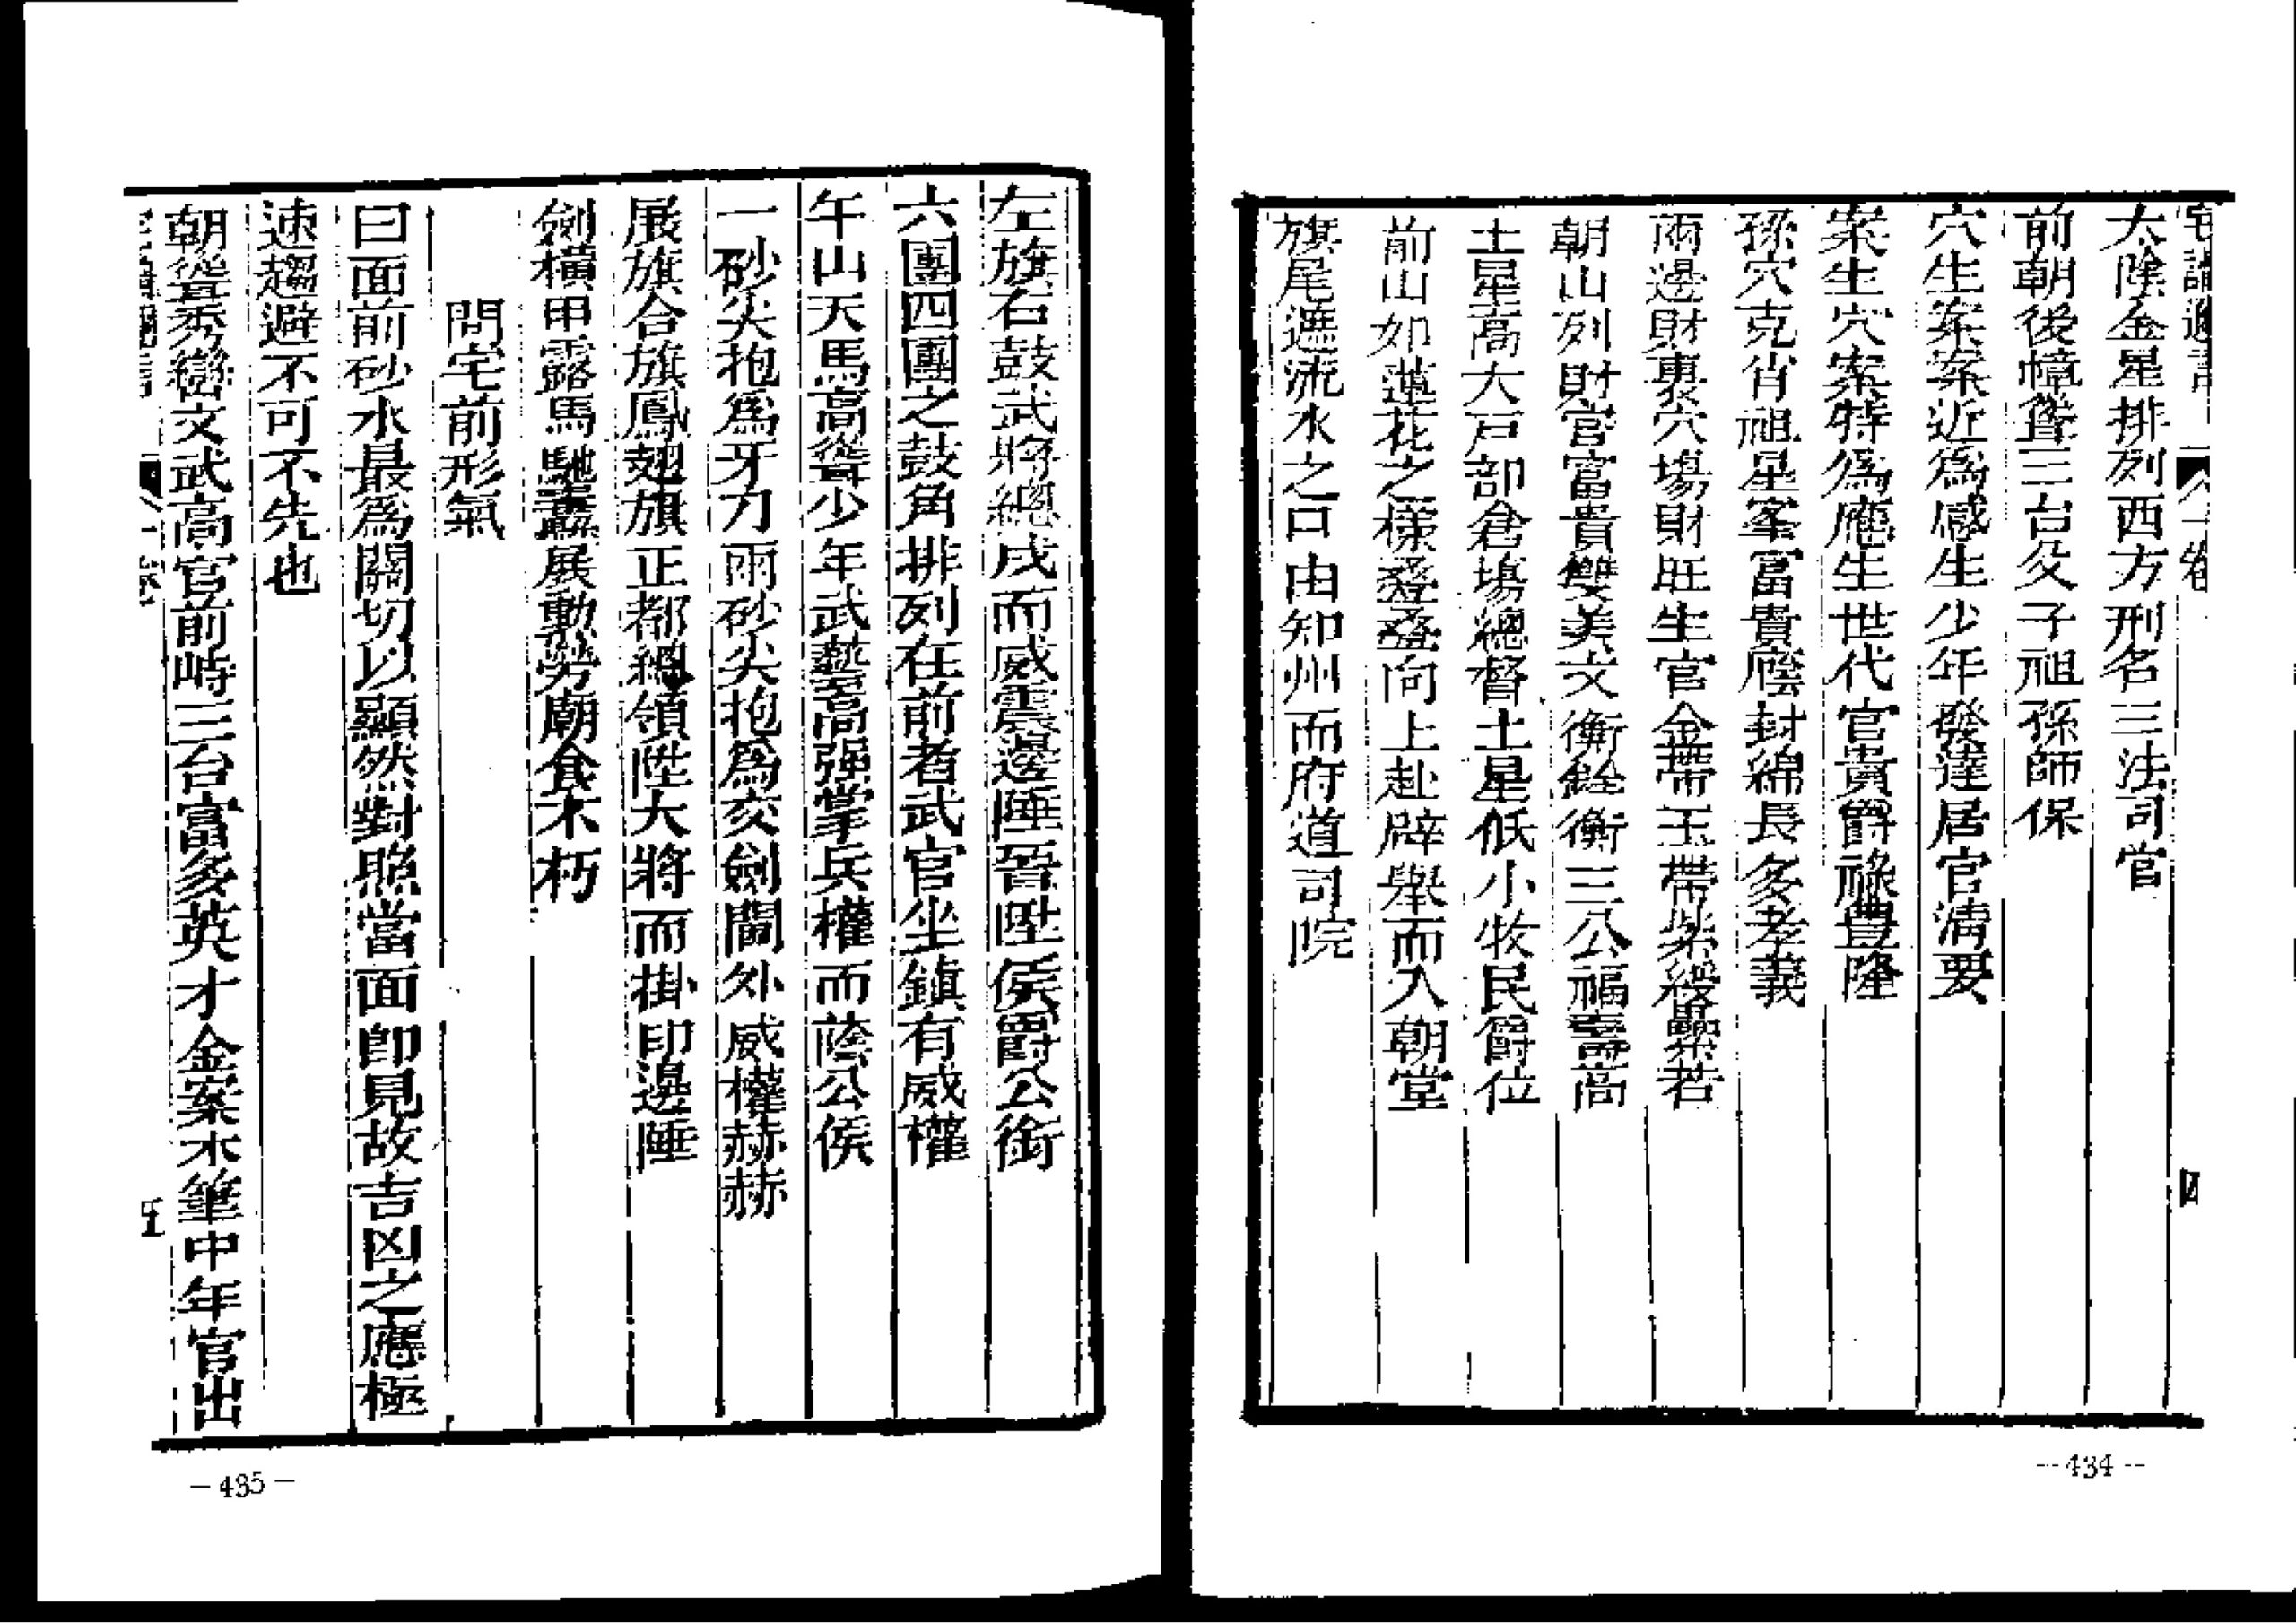 宅譜邇言 一卷 四
太陰金星排列西方刑名三法司官
前朝後幛聳三台父子祖孫師保
穴生案案近為感生少年發達居官清要
案生穴案特為應生世代官貴爵祿豐隆
孫穴克肖祖星峯富貴廕封綿長多孝義
兩邊財裏穴場財旺生官金帶玉帶紫綬纍若
朝山列財官富貴雙美文衡銓衡三公福壽高
土星高大戸部倉塲總督土星低小牧民爵位
前山如蓮花之樣叠叠向上赴辟舉而入朝堂
旗尾遮流水之口由知州而府道司院
--434--
左旗右鼓武將總戎而威震邊陲晉陞侯爵公銜
六團四團之鼓角排列在前者武官坐鎮有威權
午山天馬高聳少年武藝高強掌兵權而蔭公侯
一砂尖抱為牙刀兩砂尖抱為交劍閫外威權赫赫
展旗合旗鳳翅旗正都綱領陞大將而掛印邊陲
劍橫甲露馬馳纛展動勞廟食不朽
問宅前形氣
曰面前砂水最為關切以顯然對照當面卽見故吉凶之應極
速趨避不可不先也
朝聳秀巒文武高官前峙三台富多英才金案木筆中年官出
一卷 五
—435—